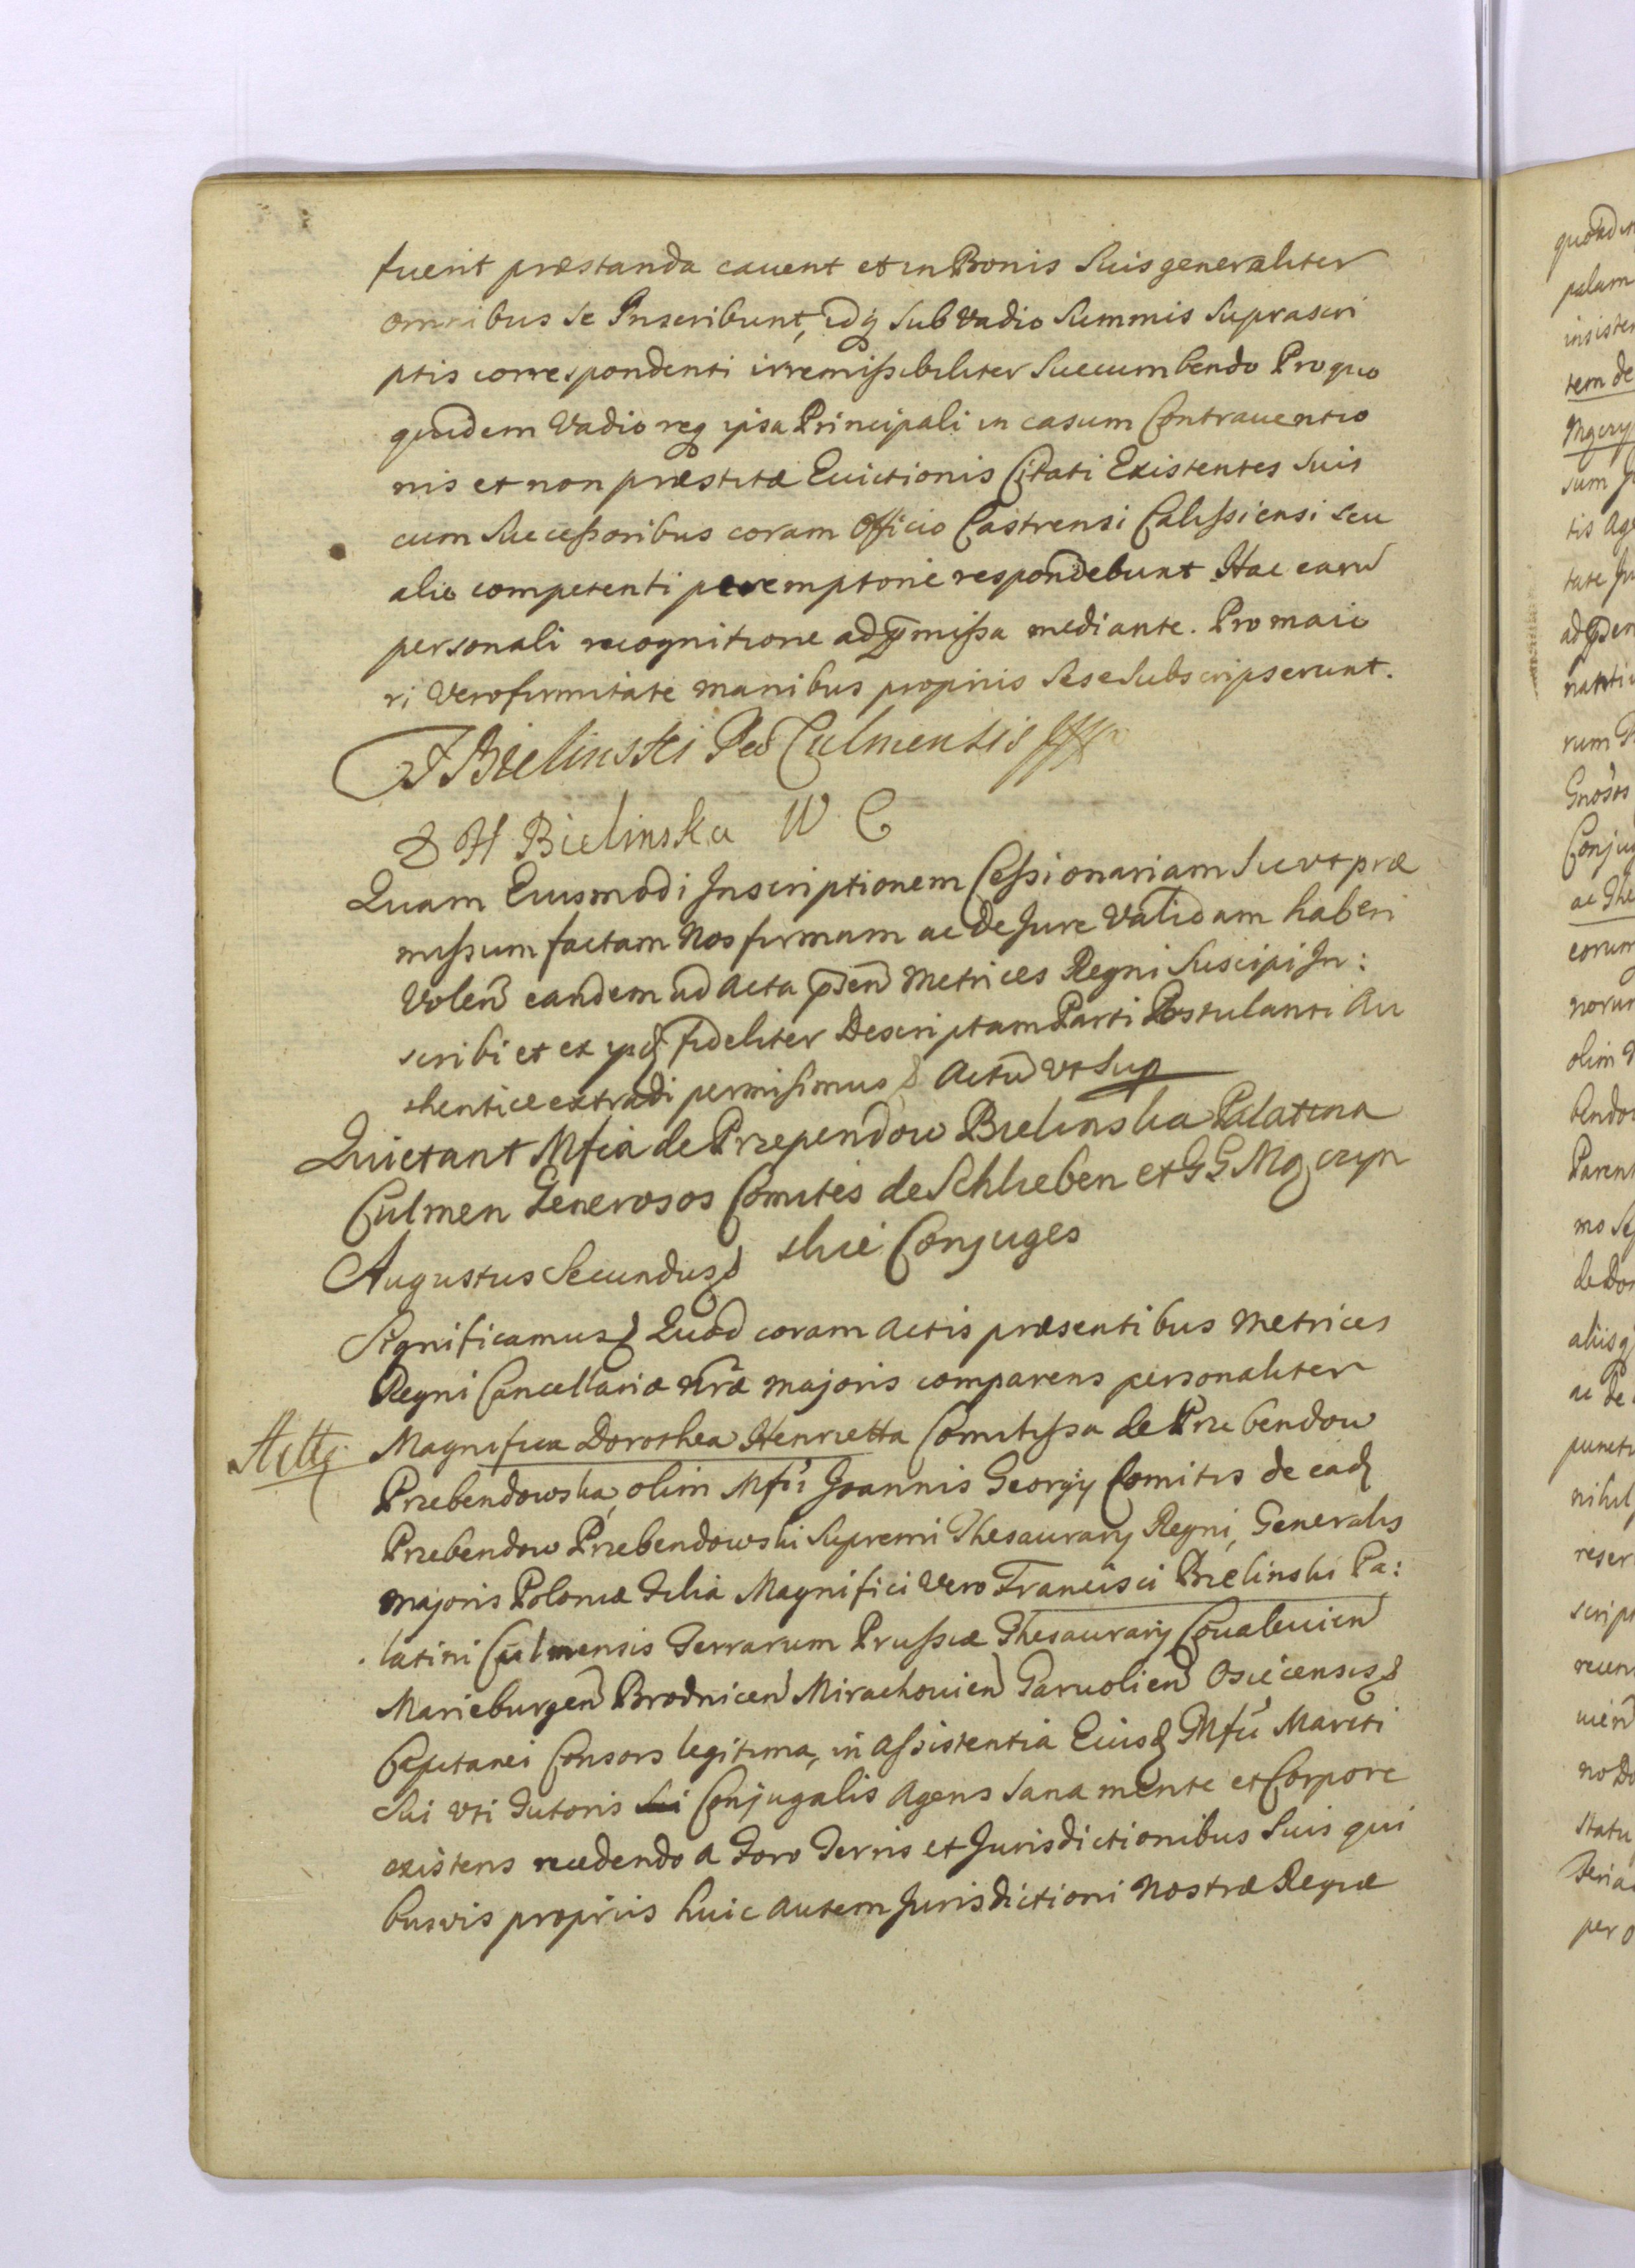 fuerit præstanda cavent et in Bonis Suis generaliter
omnibus se Inscribunt, idq sub Vadio Summis Suprascri
ptis correspondenti irremißibiliter Succumbendo Pro quo
quidem Vadio req ipsa Principali in casum Contraventio
nis et non præstitæ Evictionis Citati Existentes Suis
cum Succeßoribus coram Officio Castrensi Calißiensi seu
alio competenti peremptorie respondebunt Hac earu
personali recognitione ad pmißa mediante. Pro maio
ri Vero firmitate manibus propriis Sese Subscripserunt.
F Bielinski Culmensis
D H Bielinska W C
Quam Eiusmodi Inscriptionem Ceßionariam Sic ut præ
mißum factam Nos firmam ac De Jure Validam haberi
Volen eandem ad Acta psen Metrices Regni Suscipi In:
scribi et ex fideliter Descriptam Parti Postulanti Au
thentice extradi permisimus Actu Vt Sup
Quietant Mfca de Przependow Bielinska Palatina
Culmen Generosos Comites de Schlieben et GG Mgczyn
skie Conjuges
Augustus Secundus
Significamus Quod coram Actis præsentibus Metrices
Regni Cancellariæ nræ Majoris comparens personaliter
Magnifica Dorothea Henrietta Comitißa de Przebendow
Przebendowska, olim Mfci Joannis Georgij Comitis de ead
Przebendow Przebendowski Supremi Thesaurarij Regni, Generalis
Majoris Poloniæ Filia Magnifici Vero Francisci Bielinski Pa:
latini Culmensis Terrarum Prußiæ Thesaurarij Covalevien
Marieburgen Brodnicen Mirachovien Garvolien Osiecensis
Capitanei Consors legitima, in Aßistentia Eiusd Mfci Mariti
Sui Vti Tutoris Sui Conjugalis Agens Sana mente et Corpore
existens recedendo a Foro Terris et Jurisdictionibus Suis qui
busvis propriis huic Autem Jurisdictioni Nostræ Regiæ
quoad
palam
tem de
Mgczy
sum
tis
tate
rum
Conju
ac
eorum
olim
Parent
de Do
aliisq
ac de
puncti
nihil
reser
script
recen
no Do
Statu
per o